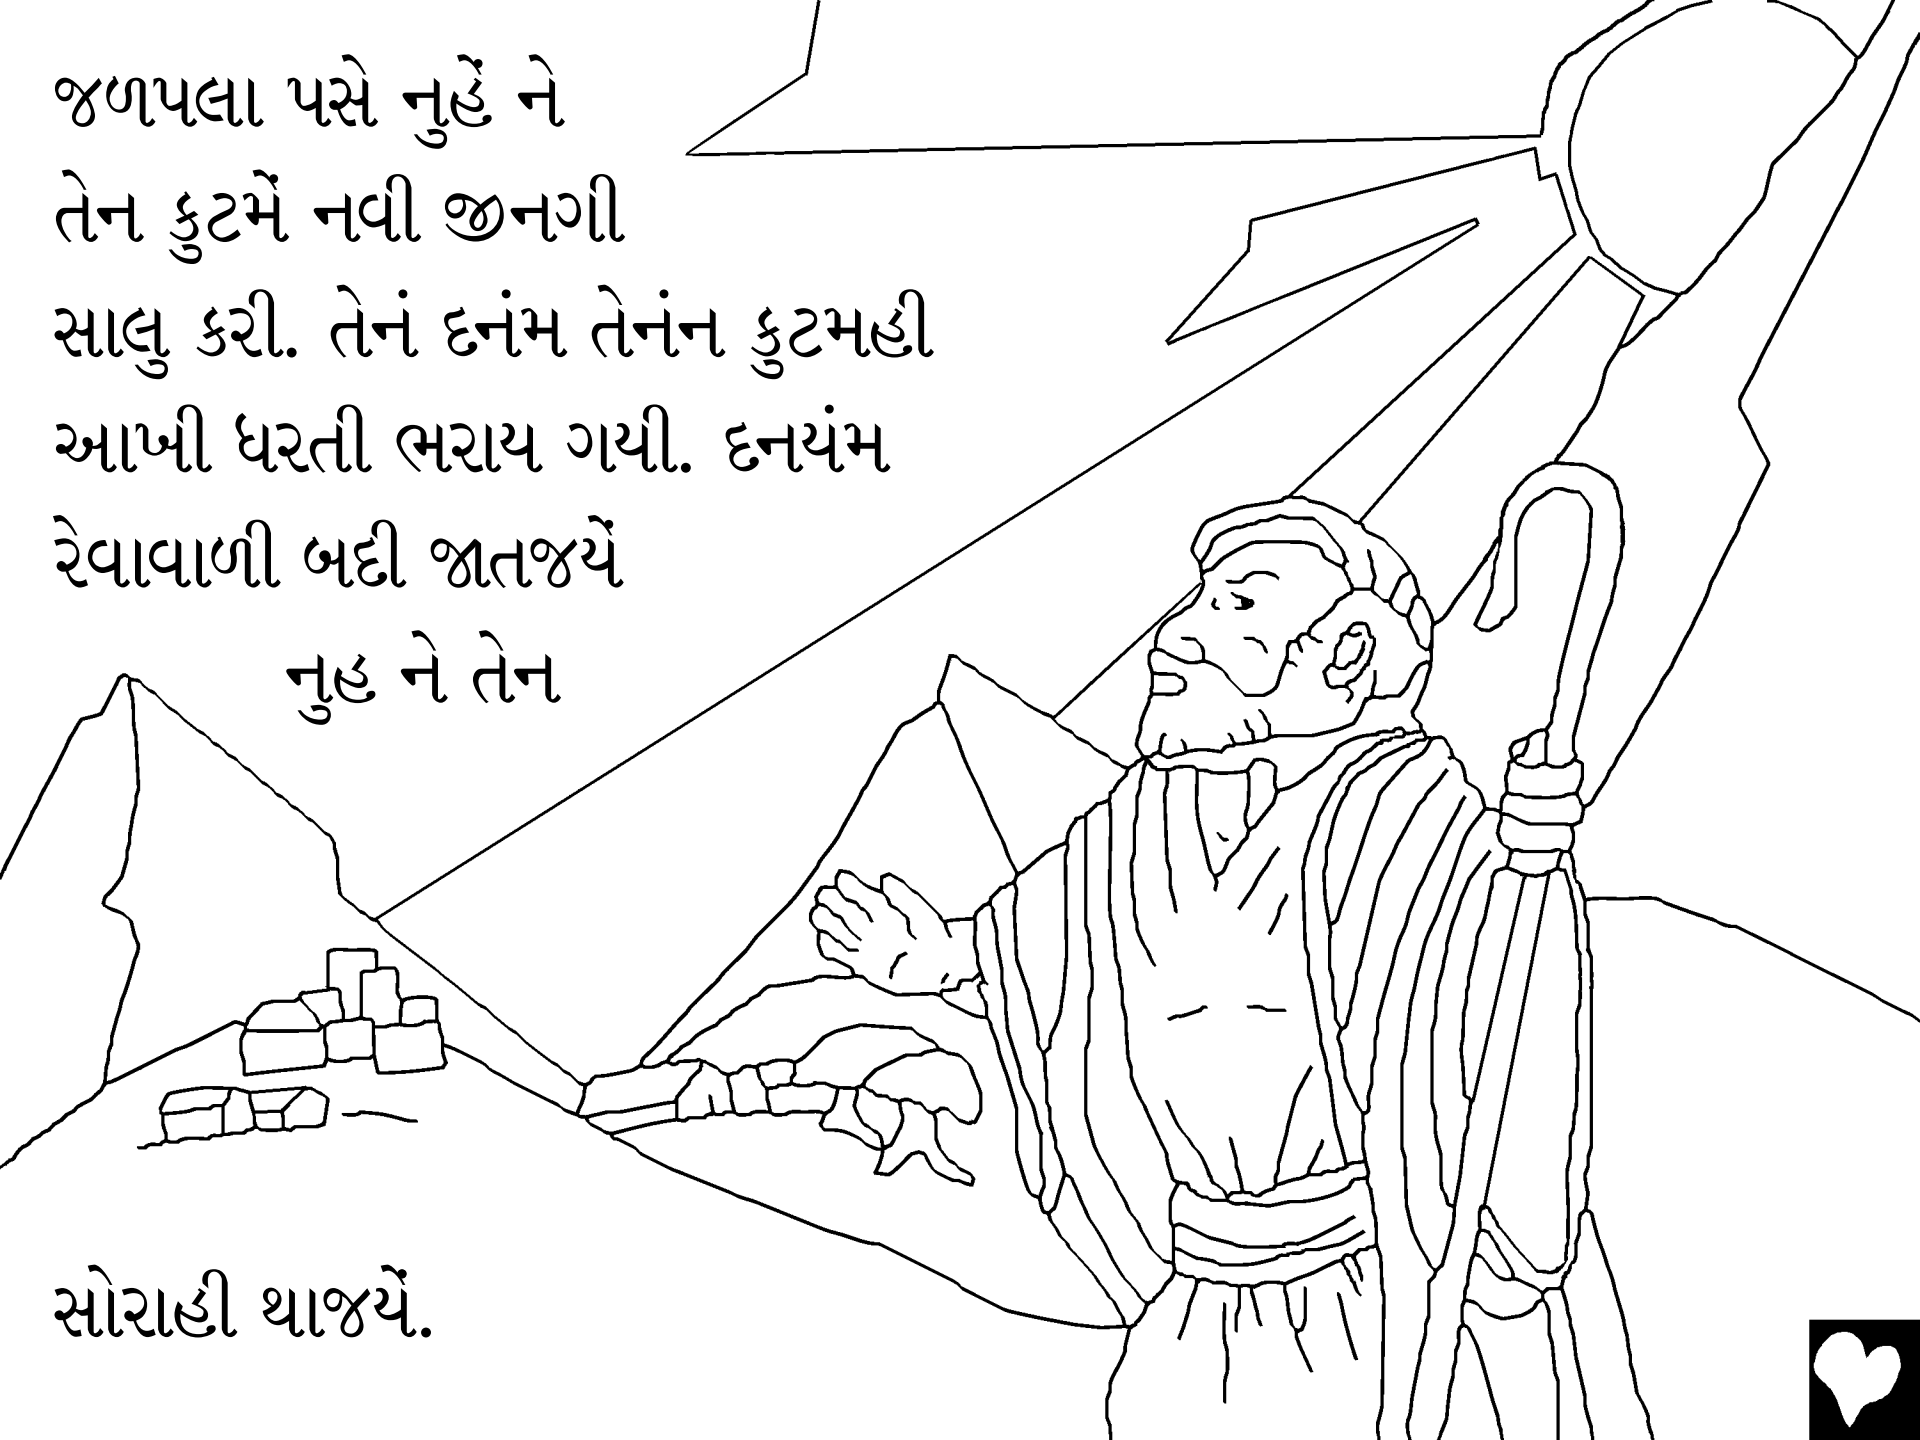 જળપલા પસે નુહેં ને
તેન કુટમેં નવી જીનગી
સાલુ કરી. તેનં દનંમ તેનંન કુટમહી
આખી ધરતી ભરાય ગયી. દનયંમ
રેવાવાળી બદ્દી જાતજયેં
નુહ ને તેન
સોરાહી થાજયેં.